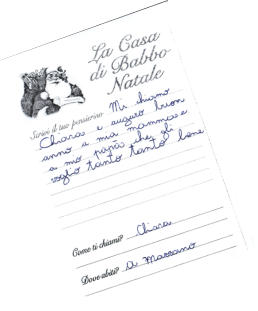 La Casa
di Babbo
Natale
Scrivi il tuo pensierino Mi chiamo
Chiara e auguro buon
anno a mia mamma e
a mio papà che gli
voglio tanto tanto bene
Come ti chiami? Chiara
Dove abiti? a Marzano